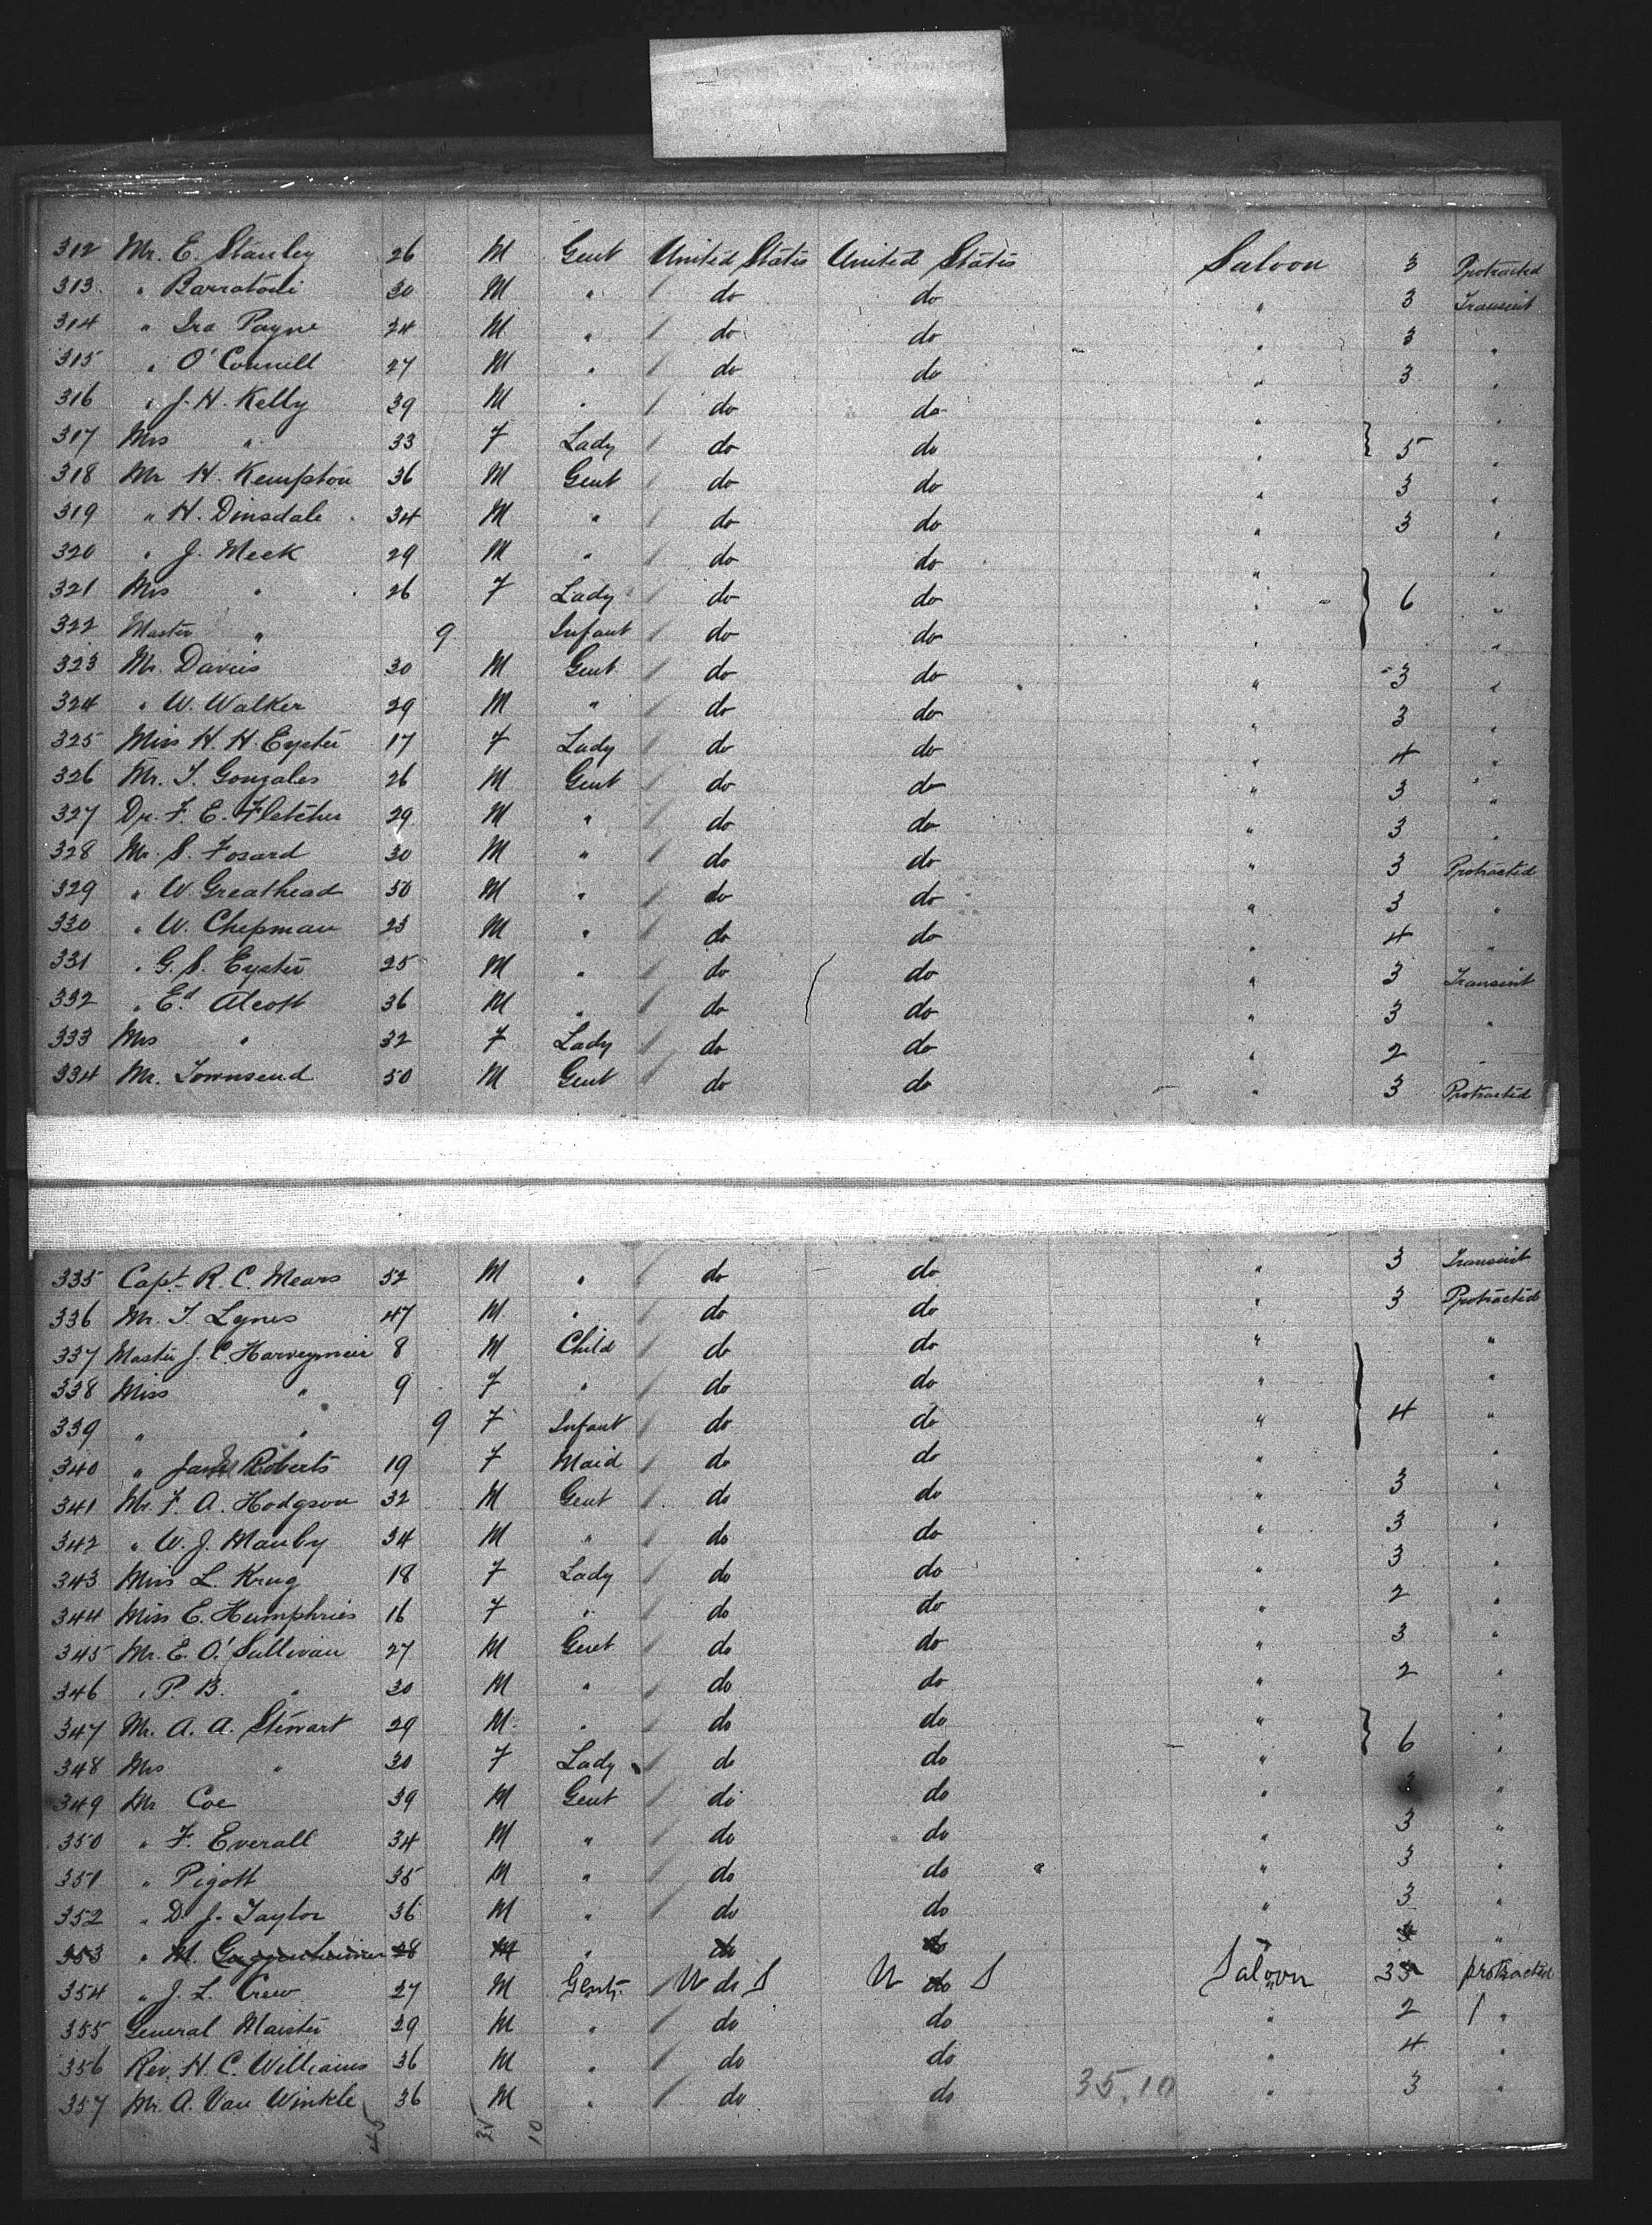 312 Mr. E. Stanley 26 M Gent United States United States Saloon 3 Protracted
313 " Barratoni 30 M " do do " 3 Transient
314 " Ira Payne 24 M " do do " 3 "
315 " O'Connell 27 M " do do " 3 "
316 " J. H. Kelly 39 M " do do " "
317 Mrs " 33 F Lady do do " 5 "
318 Mr H. Kempton 36 M Gent do do " 3 "
319 " H. Dinsdale 34 M " do do " 3 "
320 " J. Meek 29 M " do do " "
321 Mrs " 26 F Lady do do " 6 "
322 Master " 9 Infant do do " "
323 Mr. Davies 30 M Gent do do " 3 "
324 " W. Walker 29 M " do do " 3 "
325 Miss H. H. Eyster 17 F Lady do do " 4 "
326 Mr. T. Gonzales 26 M Gent do do " 3 "
327 Dr. F. E. Fletcher 29 M " do do " 3 "
328 Mr. S. Fosard 30 M " do do " 3 Protracted
329 " W. Greathead 50 M " do do " 3 "
330 " W. Chepman 23 M " do do " 4 "
331 " G. S. Eyster 25 M " do do " 3 Transient
332 " Ed Alcott 36 M " do do " 3 "
333 Mrs " 32 F Lady do do " 2 "
334 Mr. Townsend 50 M Gent do do " 3 Protracted
335 Capt. R. C. Mears 52 M " do do " 3 Transient
336 Mr. T. Lynes 47 M " do do " 3 Protracted
337 Master J. C. Harveymeir 8 M Child do do " "
338 Miss " 9 F " do do " "
339 " " 9 F Infant do do " 4 "
340 " Jane Roberts 19 F Maid do do " "
341 Mr. F. A. Hodgson 32 M Gent do do " 3 "
342 " W. J. Manby 34 M " do do " 3 "
343 Miss L. Krug 18 F Lady do do " 3 "
344 Miss E. Humphries 16 F " do do " 2 "
345 Mr. E. O'Sullivan 27 M Gent do do " 3 "
346 " P. B. " 30 M " do do " 2 "
347 Mr. A. A. Stewart 29 M " do do " "
348 Mrs " 30 F Lady do do " 6 "
349 Mr Coe 39 M Gent do do " "
350 " F. Everall 34 M " do do " 3 "
351 " Pigott 35 M " do do " 3 "
352 " D. J. Taylor 36 M " do do " 3 "
353 " M. Guggenheimer 28 M " do do "
354 " J. L. Crew 27 M Gent. U do S U do S Saloon 3 protracted
355 General Maister 29 M " do do " 2 "
356 Rev. H. C. Williams 36 M " do do " 4 "
357 Mr. A. Van Winkle 36 M " do do 35.10 " 3 "
10